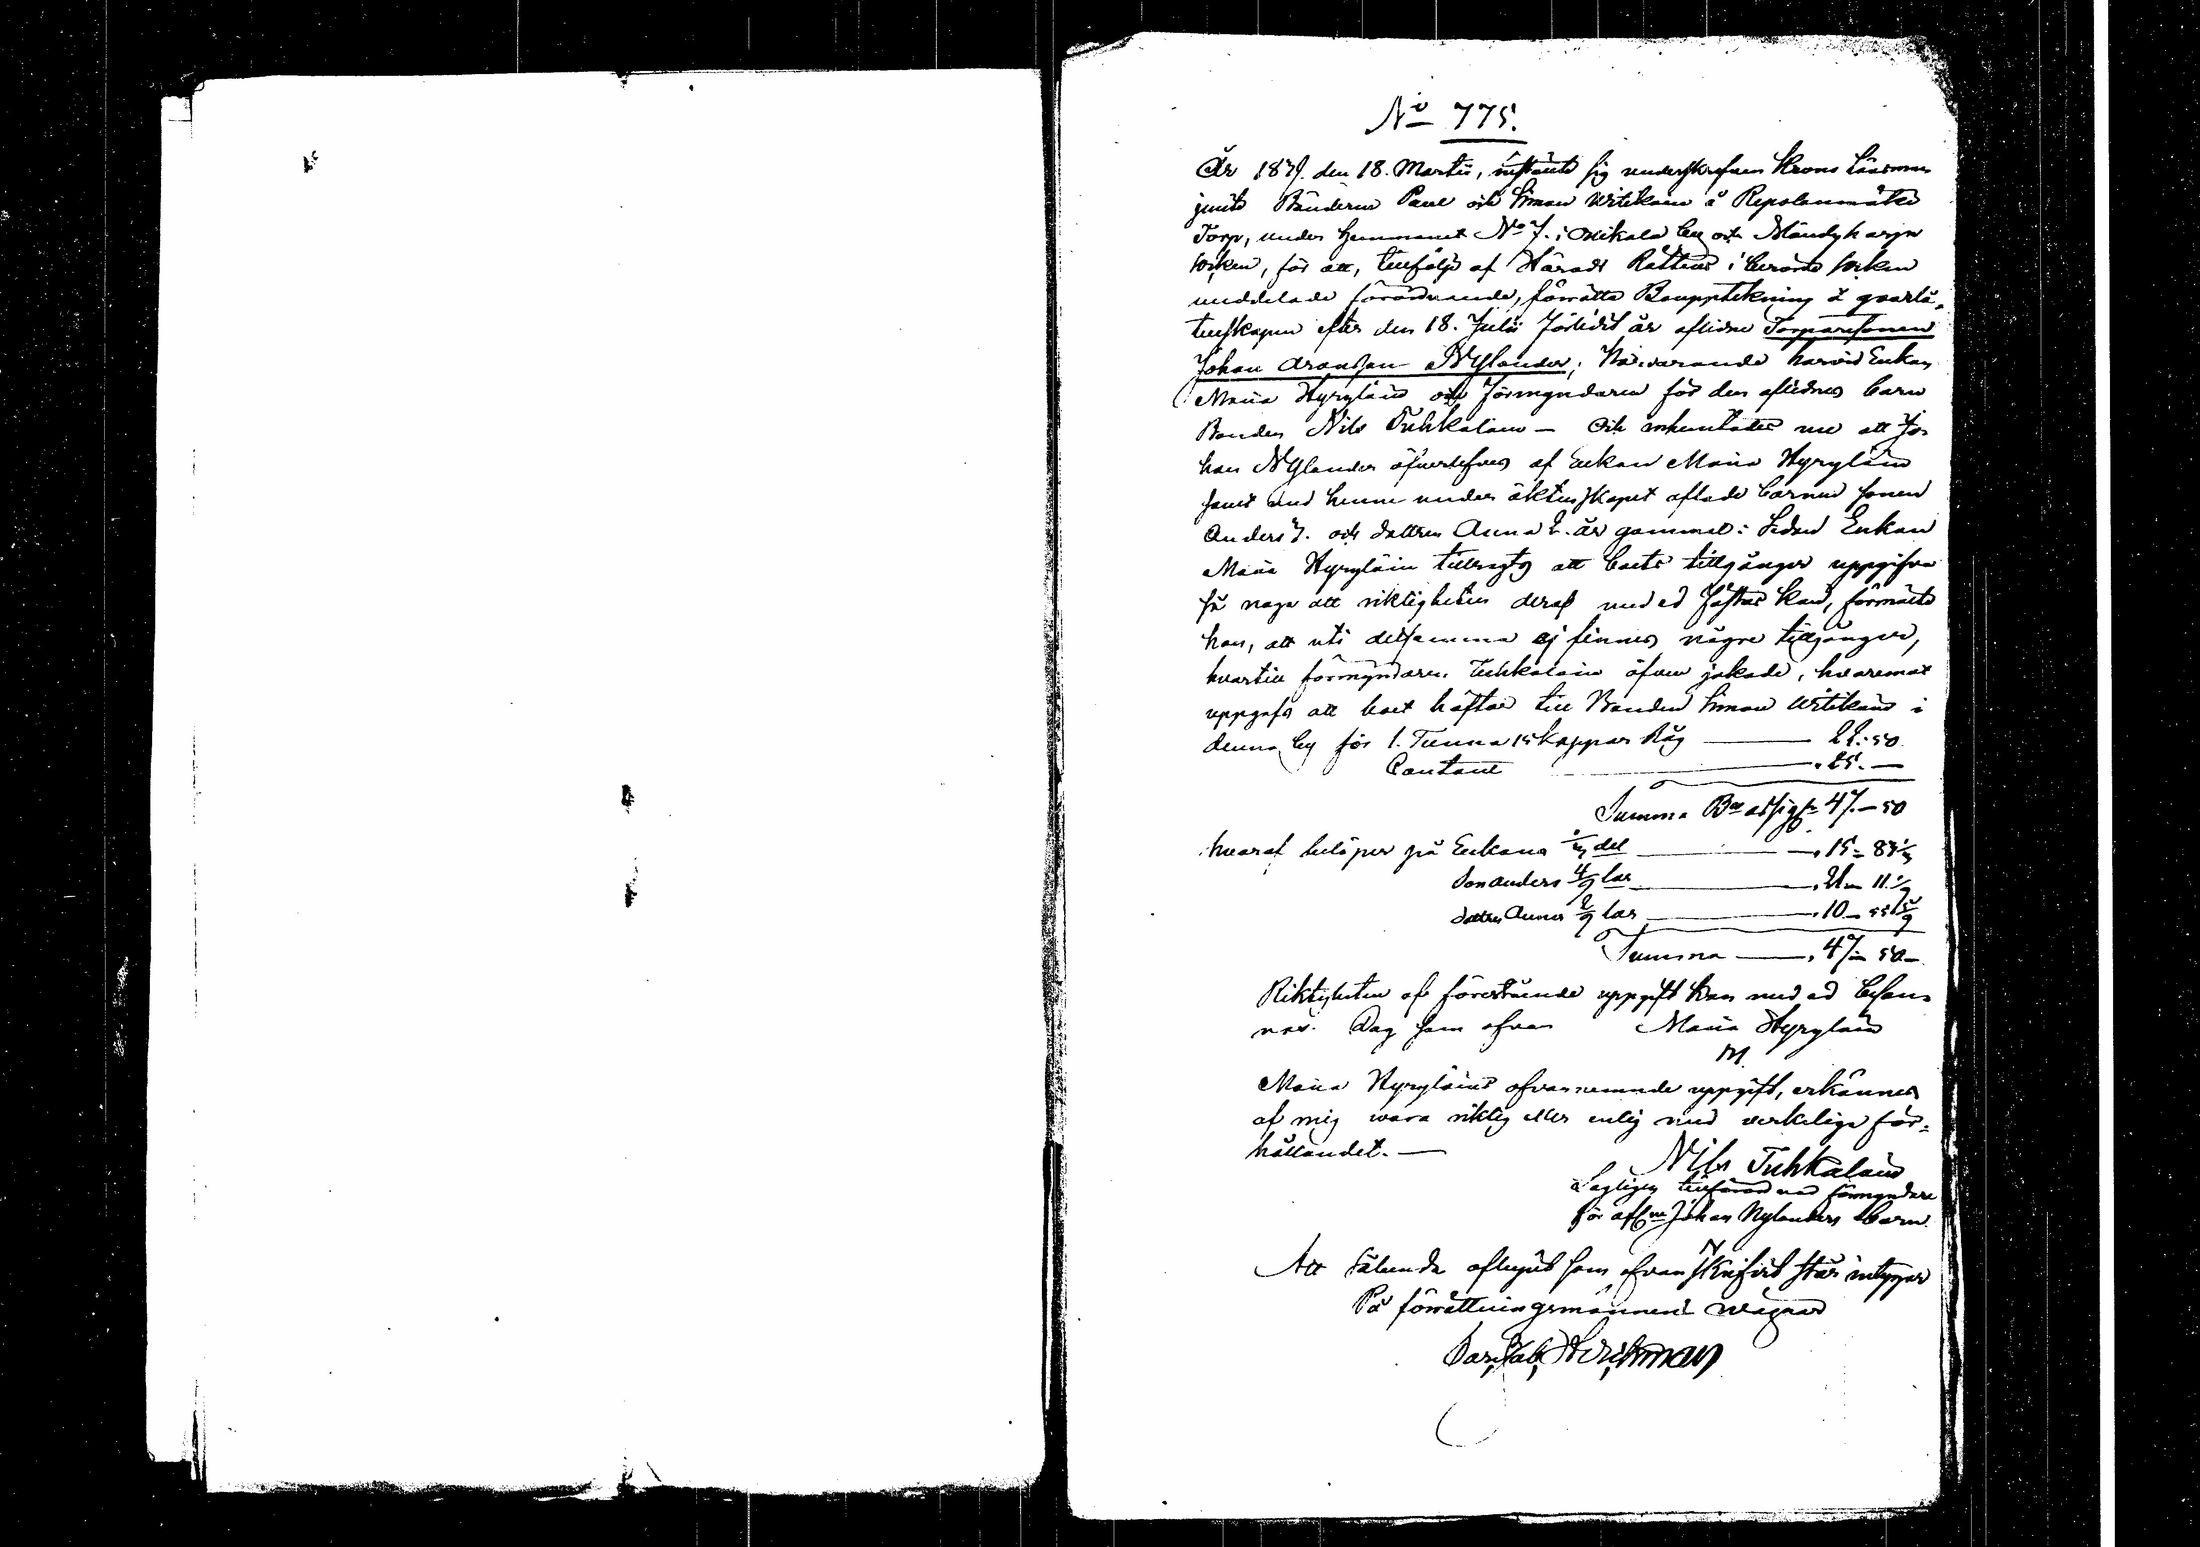 No 775.
År 1839. den 18. Martii, instälte sig underskrefven Krono Länsman
jemte Bönderne Paul och Simon Wirtikain å Repolanmäki
Torp, under hemmanet No 7. i Nikala by och Mändyharju
socken, för att, tillfölje af Härads Rättens i berörde socken
meddelade förordnande, förrätta Bouppteckning å qvarlå-
tenskapen efter den 18. Julii förledit år aflidne Torparesonen
Johan Aronsson Nylander, Närvarande härvid Enkan
Maria Hyryläin och förmyndaren för den aflidnes barn
Bonden Nils Tuhkalain – Och inhemtades nu att Jo-
han Nylander öfverlefves af Enkan Maria Hyryläin
samt med henne under äktenskapet aflade barnen sonen
Anders 7. och dottren Anna 2. år gammal: Sedan Enkan
Maria Hyryläin tillsagts att boets tillgångar uppgifva
så noga att riktigheten deraf med ed fästas kan, förmälte
hon, att uti detsamma ej finnes några tillgångar,
hvartill förmyndaren Tuhkalain äfven jakade, hvaremot
uppgafs att boet häftar till Bonden Simon Wirtikain i
denna by för 1. Tunna 15 kappar Råg — 22.50
Contant — 25.—
Summa Bco assign 47.—50
hvaraf belöper på Enkans 1/3 del — 15–83 1/3
Son Anders 4/9 lar — 21– 11 1/9
dottren Anna 2/9 lar — 10– 55 5/9
Summa — 47– 50–
Riktigheten af förestående uppgift kan med ed besan-
nas. Dag som ofvan Maria Hyryläin
M
Maria Hyryläins ofvannemnde uppgift, erkännes
af mig vara riktig eller enlig med verkeliga för-
hållandet.—
Nils Tuhkalain
Lagligen tillförordnad förmyndare
för aflne Johan Nylanders barn.
N
Att sålunda aflupit som ofvan skrifvit står intygar
På förrättningsmännens vägnar